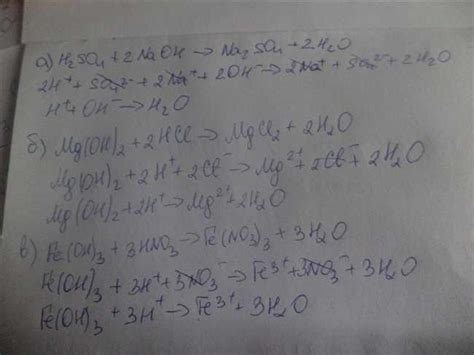 а) H₂SO₄ + 2NaOH → Na₂SO₄ + 2H₂O
2H⁺ + SO₄²⁻ + 2Na⁺ + 2OH⁻ → 2Na⁺ + SO₄²⁻ + 2H₂O
H⁺ + OH⁻ → H₂O
б) Mg(OH)₂ + 2HCl → MgCl₂ + 2H₂O
Mg(OH)₂ + 2H⁺ + 2Cl⁻ → Mg²⁺ + 2Cl⁻ + 2H₂O
Mg(OH)₂ + 2H⁺ → Mg²⁺ + 2H₂O
в) Fe(OH)₃ + 3HNO₃ → Fe(NO₃)₃ + 3H₂O
Fe(OH)₃ + 3H⁺ + 3NO₃⁻ → Fe³⁺ + 3NO₃⁻ + 3H₂O
Fe(OH)₃ + 3H⁺ → Fe³⁺ + 3H₂O